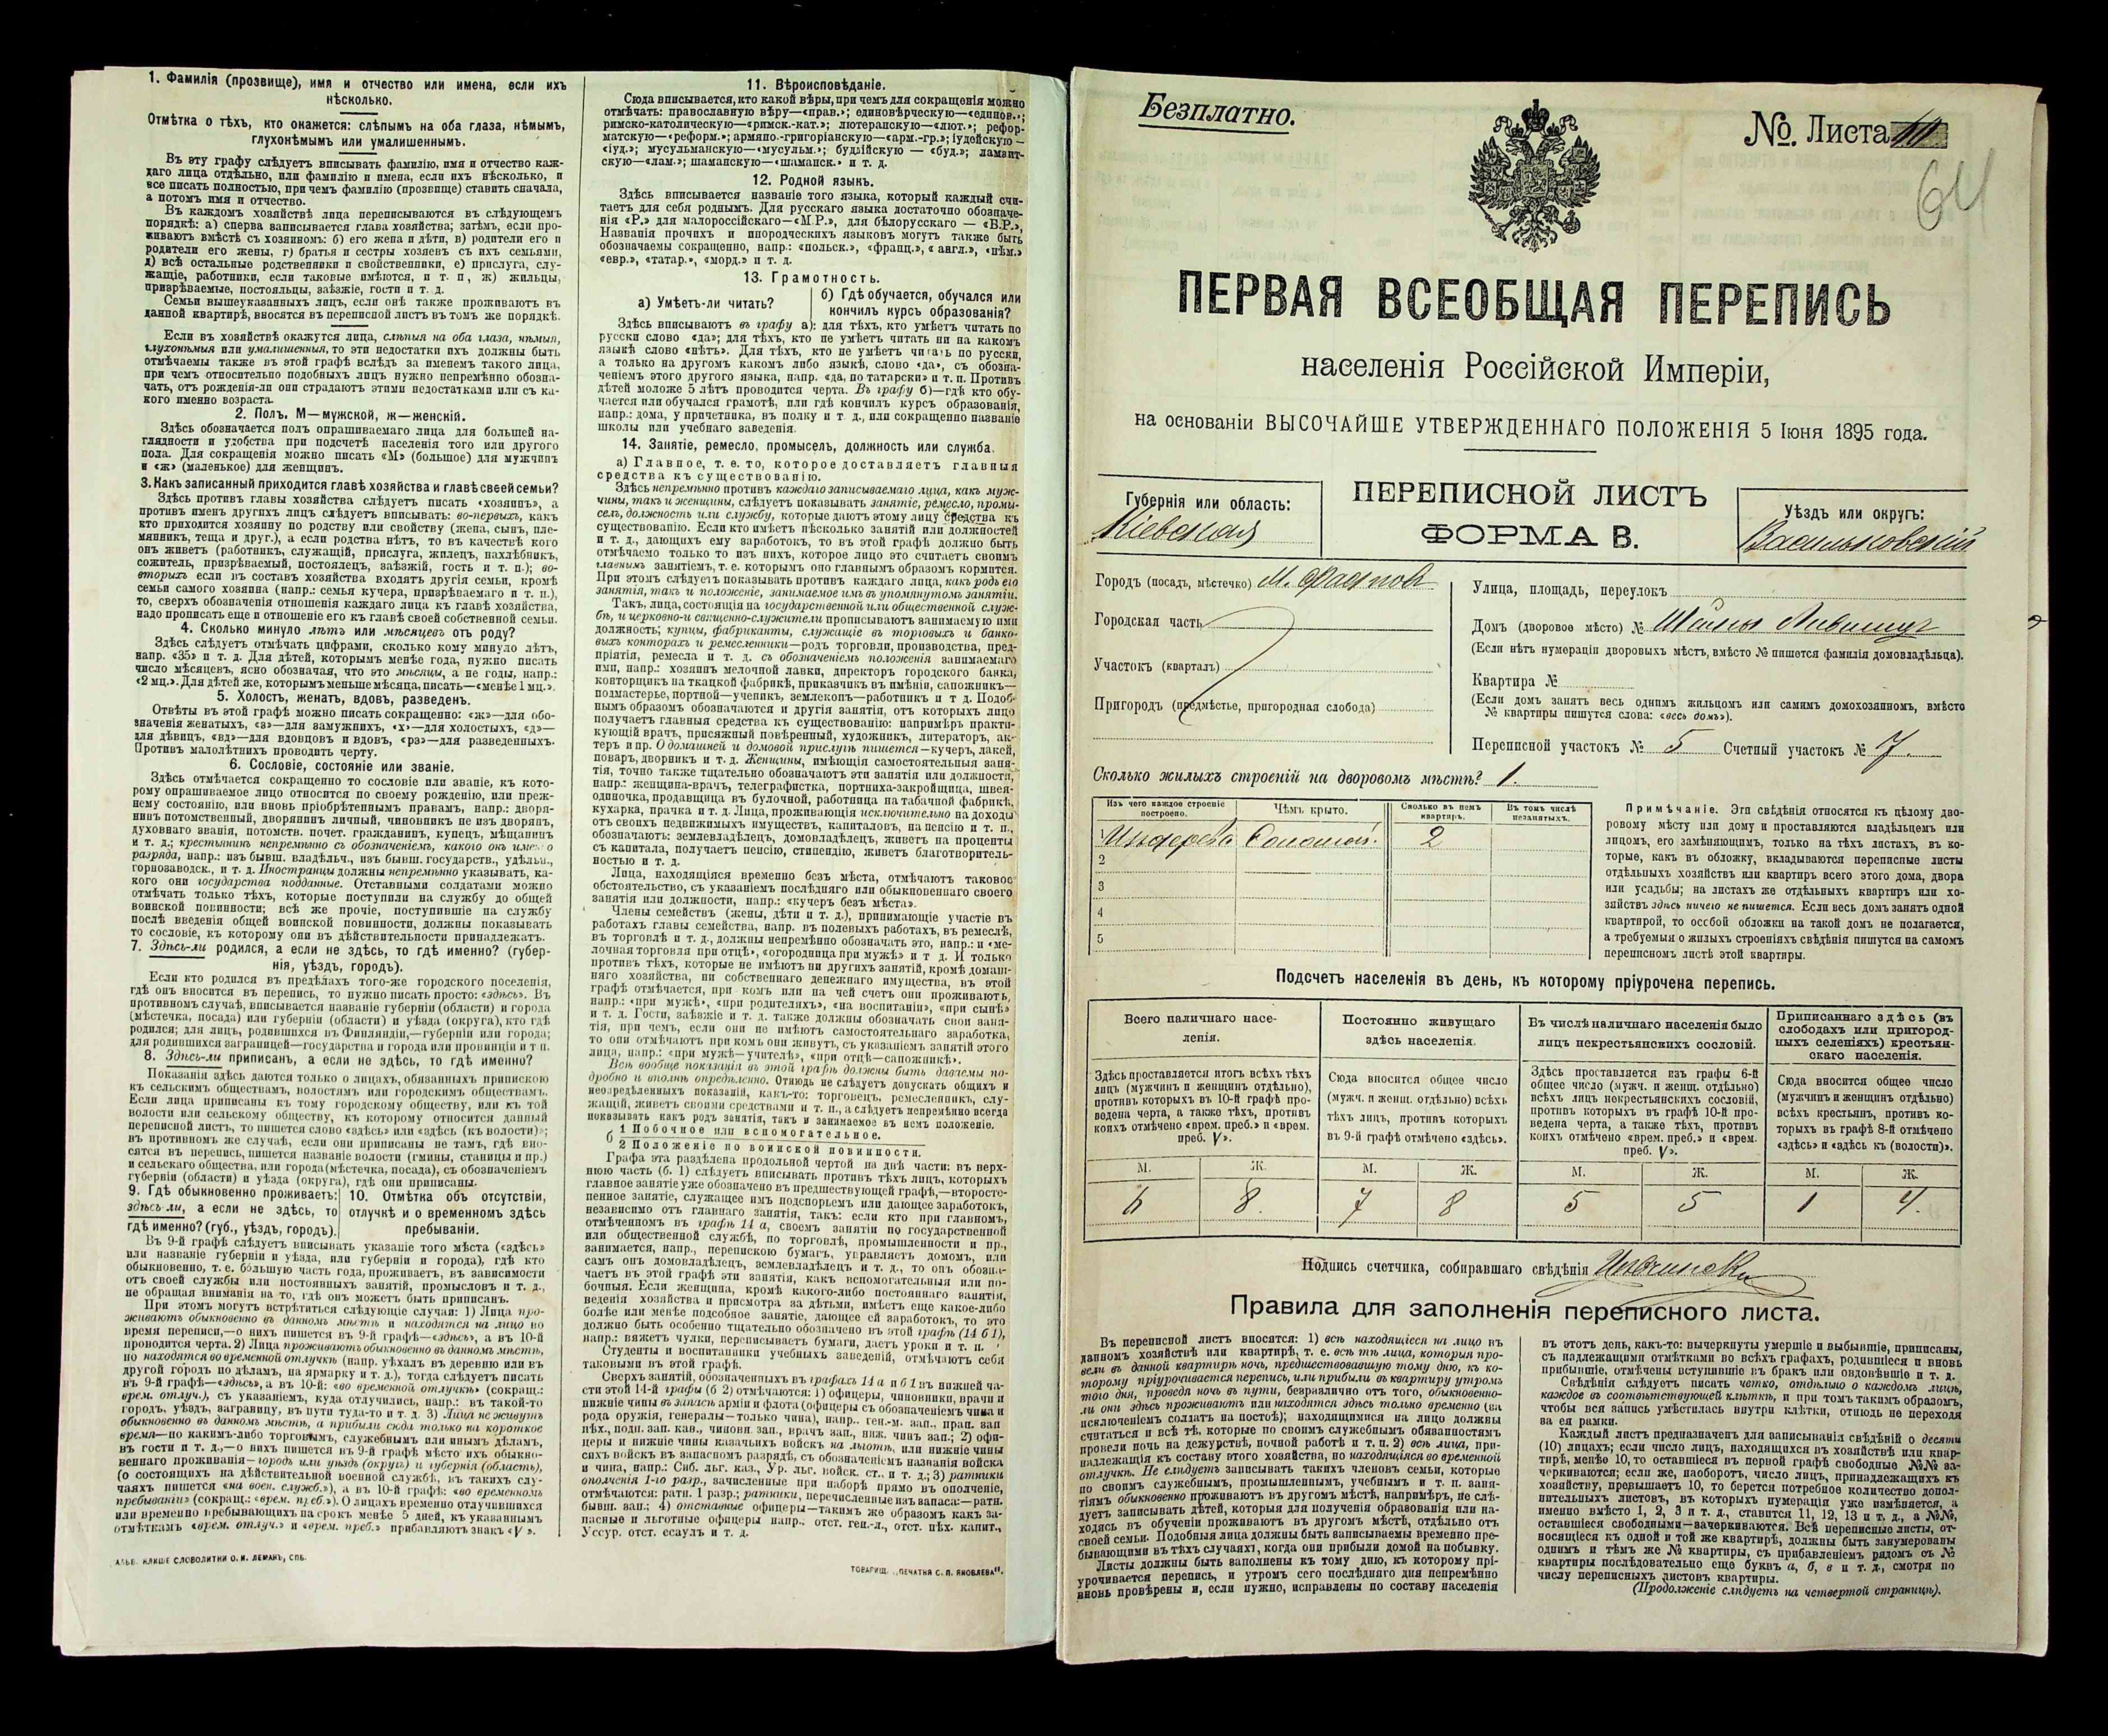 1. Фамилія (прозвище), имя и отчество или имена, если ихъ
нѣсколько.
Отмѣтка о тѣхъ, кто окажется: слѣпымъ на оба глаза, нѣмымъ,
глухонѣмымъ или умалишеннымъ.
Въ эту графу слѣдуетъ вписывать фамилію, имя и отчество каж-
даго лица отдѣльно, или фамилію и имена, если ихъ нѣсколько, и
все писать полностью, при чемъ фамилію (прозвище) ставить сначала,
а потомъ имя и отчество.
Въ каждомъ хозяйствѣ лица переписываются въ слѣдующемъ
порядкѣ: а) сперва записывается глава хозяйства; затѣмъ, если про-
живаютъ вмѣстѣ съ хозяиномъ: б) его жена и дѣти, в) родители его и
родители его жены, г) братья и сестры хозяевъ съ ихъ семьями,
д) всѣ остальные родственники и свойственники, е) прислуга, слу-
жащіе, работники, если таковые имѣются, и т. п., ж) жильцы,
призрѣваемые, постояльцы, заѣзжіе, гости и т. д.
Семьи вышеуказанныхъ лицъ, если онѣ также проживаютъ въ
данной квартирѣ, вносятся въ переписной листъ въ томъ же порядкѣ.
Если въ хозяйствѣ окажутся лица, слѣпыя на оба глаза, нѣмыя,
глухонѣмыя или умалишенныя, то эти недостатки ихъ должны быть
отмѣчаемы также въ этой графѣ вслѣдъ за именемъ такого лица,
при чемъ относительно подобныхъ лицъ нужно непремѣнно обозна-
чать, отъ рожденія-ли они страдаютъ этими недостатками или съ ка-
кого именно возраста.
2. Полъ. М—мужской, ж—женскій.
Здѣсь обозначается полъ опрашиваемаго лица для большей на-
глядности и удобства при подсчетѣ населенія того или другого
пола. Для сокращенія можно писать «М» (большое) для мужчинъ
и «ж» (маленькое) для женщинъ.
3. Какъ записанный приходится главѣ хозяйства и главѣ своей семьи?
Здѣсь противъ главы хозяйства слѣдуетъ писать «хозяинъ», а
противъ именъ другихъ лицъ слѣдуетъ вписывать: во-первыхъ, какъ
кто приходится хозяину по родству или свойству (жена, сынъ, пле-
мянникъ, теща и друг.), а если родства нѣтъ, то въ качествѣ кого
онъ живетъ (работникъ, служащій, прислуга, жилецъ, нахлѣбникъ,
сожитель, призрѣваемый, постоялецъ, заѣзжій, гость и т. п.); во-
вторыхъ если въ составъ хозяйства входятъ другія семьи, кромѣ
семьи самого хозяина (напр.: семья кучера, призрѣваемаго и т. п.),
то, сверхъ обозначенія отношенія каждаго лица къ главѣ хозяйства,
надо прописать еще и отношеніе его къ главѣ своей собственной семьи.
4. Сколько минуло лѣтъ или мѣсяцевъ отъ роду?
Здѣсь слѣдуетъ отмѣчать цифрами, сколько кому минуло лѣтъ,
напр. «35» и т. д. Для дѣтей, которымъ менѣе года, нужно писать
число мѣсяцевъ, ясно обозначая, что это мѣсяцы, а не годы, напр.:
«2 мц.». Для дѣтей же, которымъ меньше мѣсяца, писать—«менѣе 1 мц.».
5. Холостъ, женатъ, вдовъ, разведенъ.
Отвѣты въ этой графѣ можно писать сокращенно: «ж»—для обо-
значенія женатыхъ, «з»—для замужнихъ, «х»—для холостыхъ, «д»—
для дѣвицъ, «вд»—для вдовцовъ и вдовъ, «рз»—для разведенныхъ.
Противъ малолѣтнихъ проводить черту.
6. Сословіе, состояніе или званіе.
Здѣсь отмѣчается сокращенно то сословіе или званіе, къ кото-
рому опрашиваемое лицо относится по своему рожденію, или преж-
нему состоянію, или вновь пріобрѣтеннымъ правамъ, напр.: дворя-
нинъ потомственный, дворянинъ личный, чиновникъ не изъ дворянъ,
духовнаго званія, потомств. почет. гражданинъ, купецъ, мѣщанинъ
и т. д.; крестьянинъ непремѣнно съ обозначеніемъ, какого онъ имен о
разряда, напр.: изъ бывш. владѣльч., изъ бывш. государств., удѣльн.,
горнозаводск., и т. д. Иностранцы должны непремѣнно указывать, ка-
кого они государства подданные. Отставными солдатами можно
отмѣчать только тѣхъ, которые поступили на службу до общей
воинской повинности; всѣ же прочіе, поступившіе на службу
послѣ введенія общей воинской повинности, должны показывать
то сословіе, къ которому они въ дѣйствительности принадлежатъ.
7. Здѣсь-ли родился, а если не здѣсь, то гдѣ именно? (губер-
нія, уѣздъ, городъ).
Если кто родился въ предѣлахъ того-же городского поселенія,
гдѣ онъ вносится въ перепись, то нужно писать просто: «здѣсь». Въ
противномъ случаѣ, вписывается названіе губерніи (области) и города
(мѣстечка, посада) или губерніи (области) и уѣзда (округа), кто гдѣ
родился; для лицъ, родившихся въ Финляндіи,—губерніи или города;
для родившихся заграницей—государства и города или провинціи и т п.
8. Здѣсь-ли приписанъ, а если не здѣсь, то гдѣ именно?
Показанія здѣсь даются только о лицахъ, обязанныхъ припискою
къ сельскимъ обществамъ, волостямъ или городскимъ обществамъ.
Если лица приписаны къ тому городскому обществу, или къ той
волости или сельскому обществу, къ которому относится данный
переписной листъ, то пишется слово «здѣсь» или «здѣсь (къ волости)»;
въ противномъ же случаѣ, если они приписаны не тамъ, гдѣ вно-
сятся въ перепись, пишется названіе волости (гмины, станицы и пр.)
и сельскаго общества, или города (мѣстечка, посада), съ обозначеніемъ
губерніи (области) и уѣзда (округа), гдѣ они приписаны.
9. Гдѣ обыкновенно проживаетъ: здѣсь ли, а если не здѣсь, то гдѣ именно? (губ., уѣздъ, городъ).
10. Отмѣтка объ отсутствіи, отлучкѣ и о временномъ здѣсь пребываніи.
Въ 9-й графѣ слѣдуетъ вписывать указаніе того мѣста («здѣсь»
или названіе губерніи и уѣзда, или губерніи и города), гдѣ кто
обыкновенно, т. е. бо́льшую часть года, проживаетъ, въ зависимости
отъ своей службы или постоянныхъ занятій, промысловъ и т. д.,
не обращая вниманія на то, гдѣ онъ можетъ быть приписанъ.
При этомъ могутъ встрѣтиться слѣдующіе случаи: 1) Лица про-
живаютъ обыкновенно въ данномъ мѣстѣ и находятся на лицо во
время переписи,—о нихъ пишется въ 9-й графѣ—«здѣсь», а въ 10-й
проводится черта. 2) Лица проживаютъ обыкновенно въ данномъ мѣстѣ,
но находятся во временной отлучкѣ (напр. уѣхалъ въ деревню или въ
другой городъ по дѣламъ, на ярмарку и т. д.), тогда слѣдуетъ писать
въ 9-й графѣ—«здѣсь», а въ 10-й: «во временной отлучкѣ» (сокращ.:
врем. отлуч.), съ указаніемъ, куда отлучились, напр.: въ такой-то
городъ, уѣздъ, заграницу, въ пути туда-то и т. д. 3) Лица не живутъ
обыкновенно въ данномъ мѣстѣ, а прибыли сюда только на короткое
время—по какимъ-либо торговымъ, служебнымъ или инымъ дѣламъ,
въ гости и т. д.,—о нихъ пишется въ 9-й графѣ мѣсто ихъ обыкно-
веннаго проживанія—городъ или уѣздъ (округъ) и губернія (область),
(о состоящихъ на дѣйствительной военной службѣ, въ такихъ слу-
чаяхъ пишется «на воен. служб.»), а въ 10-й графѣ: «во временномъ
пребываніи» (сокращ.: «врем. преб.»). О лицахъ временно отлучившихся
или временно пребывающихъ на срокъ менѣе 5 дней, къ указаннымъ
отмѣткамъ «врем. отлуч.» и «врем. преб.» прибавляютъ знакъ «V».
КЛИШЕ СЛОВОЛИТНИ О. И. ЛЕМАНЪ, СПБ.
11. Вѣроисповѣданіе.
Сюда вписывается, кто какой вѣры, при чемъ для сокращенія можно
отмѣчать: православную вѣру—«прав.»; единовѣрческую—«единов.»;
римско-католическую—«римск.-кат.»; лютеранскую—«лют.»; рефор-
матскую—«реформ.»; армяно-григоріанскую—«арм.-гр.»; іудейскую—
«іуд.»; мусульманскую—«мусульм.»; буддійскую — «буд.»; ламаит-
скую—«лам.»; шаманскую—«шаманск.» и т. д.
12. Родной языкъ.
Здѣсь вписывается названіе того языка, который каждый счи-
таетъ для себя роднымъ. Для русскаго языка достаточно обозначе-
нія «Р.» для малороссійскаго—«М.Р.», для бѣлорусскаго — «Б.Р.»,
Названія прочихъ и инородческихъ языковъ могутъ также быть
обозначаемы сокращенно, напр.: «польск.», «франц.», «англ.», «нѣм.»
«евр.», «татар.», «морд.» и т. д.
13. Грамотность.
а) Умѣетъ-ли читать?
б) Гдѣ обучается, обучался или кончилъ курсъ образованія?
Здѣсь вписываютъ въ графу а): для тѣхъ, кто умѣетъ читать по
русски слово «да»; для тѣхъ, кто не умѣетъ читать ни на какомъ
языкѣ слово «нѣтъ». Для тѣхъ, кто не умѣетъ читать по русски,
а только на другомъ какомъ либо языкѣ, слово «да», съ обозна-
ченіемъ этого другого языка, напр. «да, по татарски» и т. п. Противъ
дѣтей моложе 5 лѣтъ проводится черта. Въ графу б)—гдѣ кто обу-
чается или обучался грамотѣ, или гдѣ кончилъ курсъ образованія,
напр.: дома, у причетника, въ полку и т. д., или сокращенно названіе
школы или учебнаго заведенія.
14. Занятіе, ремесло, промыселъ, должность или служба.
а) Главное, т. е. то, которое доставляетъ главныя
средства къ существованію.
Здѣсь непремѣнно противъ каждаго записываемаго лица, какъ муж-
чины, такъ и женщины, слѣдуетъ показывать занятіе, ремесло, промы-
селъ, должность или службу, которые даютъ этому лицу средства къ
существованію. Если кто имѣетъ нѣсколько занятій или должностей
и т. д., дающихъ ему заработокъ, то въ этой графѣ должно быть
отмѣчаемо только то изъ нихъ, которое лицо это считаетъ своимъ
главнымъ занятіемъ, т. е. которымъ оно главнымъ образомъ кормится.
При этомъ слѣдуетъ показывать противъ каждаго лица, какъ родъ его
занятія, такъ и положеніе, занимаемое имъ въ упомянутомъ занятіи.
Такъ, лица, состоящія на государственной или общественной служ-
бѣ, и церковно-и священно-служители прописываютъ занимаемую ими
должность; купцы, фабриканты, служащіе въ торговыхъ и банко-
выхъ конторахъ и ремесленники—родъ торговли, производства, пред-
пріятія, ремесла и т. д. съ обозначеніемъ положенія занимаемаго
ими, напр.: хозяинъ мелочной лавки, директоръ городского банка,
конторщикъ на ткацкой фабрикѣ, приказчикъ въ имѣніи, сапожникъ—
подмастерье, портной—ученикъ, землекопъ—работникъ и т д. Подоб-
нымъ образомъ обозначаются и другія занятія, отъ которыхъ лицо
получаетъ главныя средства къ существованію: напримѣръ практи-
кующій врачъ, присяжный повѣренный, художникъ, литераторъ, ак-
теръ и пр. О домашней и домовой прислугѣ пишется—кучеръ, лакей,
поваръ, дворникъ и т. д. Женщины, имѣющія самостоятельныя заня-
тія, точно также тщательно обозначаютъ эти занятія или должности,
напр.: женщина-врачъ, телеграфистка, портниха-закройщица, швея-
одиночка, продавщица въ булочной, работница на табачной фабрикѣ,
кухарка, прачка и т. д. Лица, проживающія исключительно на доходы
отъ своихъ недвижимыхъ имуществъ, капиталовъ, на пенсію и т. п.,
обозначаютъ: землевладѣлецъ, домовладѣлецъ, живетъ на проценты
съ капитала, получаетъ пенсію, стипендію, живетъ благотворитель-
ностью и т. д.
Лица, находящіяся временно безъ мѣста, отмѣчаютъ таковое
обстоятельство, съ указаніемъ послѣдняго или обыкновеннаго своего
занятія или должности, напр.: «кучеръ безъ мѣста».
Члены семействъ (жены, дѣти и т. д.), принимающіе участіе въ
работахъ главы семейства, напр. въ полевыхъ работахъ, въ ремеслѣ,
въ торговлѣ и т. д., должны непремѣнно обозначать это, напр.: и «ме-
лочная торговля при отцѣ», «огородница при мужѣ» и т д. И только
противъ тѣхъ, которые не имѣютъ ни другихъ занятій, кромѣ домаш-
няго хозяйства, ни собственнаго денежнаго имущества, въ этой
графѣ отмѣчается, при комъ или на чей счетъ они проживаютъ,
напр.: «при мужѣ», «при родителяхъ», «на воспитаніи», «при сынѣ»
и т. д. Гости, заѣзжіе и т. д. также должны обозначать свои заня-
тія, при чемъ, если они не имѣютъ самостоятельнаго заработка,
то они отмѣчаютъ при комъ они живутъ, съ указаніемъ занятій этого
лица, напр.: «при мужѣ—учителѣ», «при отцѣ—сапожникѣ».
Всѣ вообще показанія въ этой графѣ должны быть даваемы по-
дробно и вполнѣ опредѣленно. Отнюдь не слѣдуетъ допускать общихъ и
неопредѣленныхъ показаній, какъ-то: торговецъ, ремесленникъ, слу-
жащій, живетъ своими средствами и т. п., а слѣдуетъ непремѣнно всегда
показывать какъ родъ занятія, такъ и занимаемое въ немъ положеніе.
б 1 Побочное или вспомогательное.
2 Положеніе по воинской повинности.
Графа эта раздѣлена продольной чертой на двѣ части: въ верх-
нюю часть (б. 1) слѣдуетъ вписывать противъ тѣхъ лицъ, которыхъ
главное занятіе уже обозначено въ предшествующей графѣ,—второсте-
пенное занятіе, служащее имъ подспорьемъ или дающее заработокъ,
независимо отъ главнаго занятія, такъ: если кто при главномъ,
отмѣченномъ въ графѣ 14 а, своемъ занятіи по государственной
или общественной службѣ, по торговлѣ, промышленности и пр.,
занимается, напр., перепискою бумагъ, управляетъ домомъ, или
самъ онъ домовладѣлецъ, землевладѣлецъ и т. д., то онъ обозна-
чаетъ въ этой графѣ эти занятія, какъ вспомогательныя или по-
бочныя. Если женщина, кромѣ какого-либо постояннаго занятія,
веденія хозяйства и присмотра за дѣтьми, имѣетъ еще какое-либо
болѣе или менѣе подсобное занятіе, дающее ей заработокъ, то это
должно быть особенно тщательно обозначено въ этой графѣ (14 б 1),
напр.: вяжетъ чулки, переписываетъ бумаги, даетъ уроки и т. п.
Студенты и воспитанники учебныхъ заведеній, отмѣчаютъ себя
таковыми въ этой графѣ.
Сверхъ занятій, обозначенныхъ въ графахъ 14 а и б 1 въ нижней ча-
сти этой 14-й графы (б 2) отмѣчаются: 1) офицеры, чиновники, врачи и
нижніе чины въ запасѣ арміи и флота (офицеры съ обозначеніемъ чина и
рода оружія, генералы—только чина), напр.. ген.-м. зап., прап. зап
пѣх., подп. зап. кав., чиновн. зап., врачъ зап., ниж. чинъ зап.; 2) офи-
церы и нижніе чины казачьихъ войскъ на льготѣ, или нижніе чины
сихъ войскъ въ запасномъ разрядѣ, съ обозначеніемъ названія войска
и чина, напр.: Сиб. льг. каз., Ур. льг. войск. ст., и т. д.; 3) ратники
ополченія 1-го разр., зачисленные при наборѣ прямо въ ополченіе,
отмѣчаются: ратн. 1 разр.; ратники, перечисленные изъ запаса:—ратн.
бывш. зап.; 4) отставные офицеры—такимъ же образомъ какъ за-
пасные и льготные офицеры напр.. отст. ген.-л., отст. пѣх. капит.,
Уссур. отст. есаулъ и т. д.
ТОВАРИЩ. „ПЕЧАТНЯ С. П. ЯКОВЛЕВА“.
Безплатно.
№ Листа
64
ПЕРВАЯ ВСЕОБЩАЯ ПЕРЕПИСЬ
населенія Россійской Имперіи,
на основаніи ВЫСОЧАЙШЕ УТВЕРЖДЕННАГО ПОЛОЖЕНІЯ 5 Іюня 1895 года.
Губернія или область:
Кіевская
ПЕРЕПИСНОЙ ЛИСТЪ
ФОРМА В.
Уѣздъ или округъ:
Васильковскій
Городъ (посадъ, мѣстечко) М. Фастовъ
Городская часть
Участокъ (кварталъ)
Пригородъ (предмѣстье, пригородная слобода)
Улица, площадь, переулокъ
Домъ (дворовое мѣсто) №
(Если нѣтъ нумераціи дворовыхъ мѣстъ, вмѣсто № пишется фамилія домовладѣльца).
Квартира №
(Если домъ занятъ весь однимъ жильцомъ или самимъ домохозяиномъ, вмѣсто
№ квартиры пишутся слова: «весь домъ»).
Переписной участокъ № 5 Счетный участокъ № 7.
Сколько жилыхъ строеній на дворовомъ мѣстѣ? 1.
Изъ чего каждое строеніе построено.
Чѣмъ крыто.
Сколько въ немъ квартиръ.
Въ томъ числѣ незанятыхъ.
1 Изъ дерева Соломой. 2
2
3
4
5
Примѣчаніе. Эти свѣдѣнія относятся къ цѣлому дво-
ровому мѣсту или дому и проставляются владѣльцемъ или
лицомъ, его замѣняющимъ, только на тѣхъ листахъ, въ ко-
торые, какъ въ обложку, вкладываются переписные листы
отдѣльныхъ хозяйствъ или квартиръ всего этого дома, двора
или усадьбы; на листахъ же отдѣльныхъ квартиръ или хо-
зяйствъ здѣсь ничего не пишется. Если весь домъ занятъ одной
квартирой, то особой обложки на такой домъ не полагается,
а требуемыя о жилыхъ строеніяхъ свѣдѣнія пишутся на самомъ
переписномъ листѣ этой квартиры.
Подсчетъ населенія въ день, къ которому пріурочена перепись.
Всего наличнаго насе-
ленія.
Здѣсь проставляется итогъ всѣхъ тѣхъ
лицъ (мужчинъ и женщинъ отдѣльно),
противъ которыхъ въ 10-й графѣ про-
ведена черта, а также тѣхъ, противъ
коихъ отмѣчено «врем. преб.» и «врем.
преб. V».
Постоянно живущаго
здѣсь населенія.
Сюда вносится общее число
(мужч. и женщ. отдѣльно) всѣхъ
тѣхъ лицъ, противъ которыхъ
въ 9-й графѣ отмѣчено «здѣсь».
Въ числѣ наличнаго населенія было
лицъ некрестьянскихъ сословій.
Здѣсь проставляется изъ графы 6-й
общее число (мужч. и женщ. отдѣльно)
всѣхъ лицъ некрестьянскихъ сословій,
противъ которыхъ въ графѣ 10-й про-
ведена черта, а также тѣхъ, противъ
коихъ отмѣчено «врем. преб.» и «врем.
преб. V».
Приписаннаго здѣсь (въ
слободахъ или пригород-
ныхъ селеніяхъ) крестьян-
скаго населенія.
Сюда вносится общее число
(мужчинъ и женщинъ отдѣльно)
всѣхъ крестьянъ, противъ ко-
торыхъ въ графѣ 8-й отмѣчено
«здѣсь» и «здѣсь къ (волости)».
М. Ж. М. Ж. М. Ж. М. Ж.
6 8. 7 8 5 5 1 4.
Подпись счетчика, собиравшаго свѣдѣнія
Правила для заполненія переписного листа.
Въ переписной листъ вносятся: 1) всѣ находящіеся на лицо въ
данномъ хозяйствѣ или квартирѣ, т. е. всѣ тѣ лица, которыя про-
вели въ данной квартирѣ ночь, предшествовавшую тому дню, къ ко-
торому пріурочивается перепись, или прибыли въ квартиру утромъ
того дня, проведя ночь въ пути, безразлично отъ того, обыкновенно-
ли они здѣсь проживаютъ или находятся здѣсь только временно (за
исключеніемъ солдатъ на постоѣ); находящимися на лицо должны
считаться и всѣ тѣ, которые по своимъ служебнымъ обязанностямъ
провели ночь на дежурствѣ, ночной работѣ и т. п. 2) всѣ лица, при-
надлежащія къ составу этого хозяйства, но находящіяся во временной
отлучкѣ. Не слѣдуетъ записывать такихъ членовъ семьи, которые
по своимъ служебнымъ, промышленнымъ, учебнымъ и т. п. заня-
тіямъ обыкновенно проживаютъ въ другомъ мѣстѣ, напримѣръ, не слѣ-
дуетъ записывать дѣтей, которыя для полученія образованія или на-
ходясь въ обученіи проживаютъ въ другомъ мѣстѣ, отдѣльно отъ
своей семьи. Подобныя лица должны быть записываемы временно пре-
бывающими въ тѣхъ случаяхъ, когда они прибыли домой на побывку.
Листы должны быть заполнены къ тому дню, къ которому прі-
урочивается перепись, и утромъ сего послѣдняго дня непремѣнно
вновь провѣрены и, если нужно, исправлены по составу населенія
въ этотъ день, какъ-то: вычеркнуты умершіе и выбывшіе, приписаны,
съ надлежащими отмѣтками во всѣхъ графахъ, родившіеся и вновь
прибывшіе, отмѣчены вступившіе въ бракъ или овдовѣвшіе и т. д.
Свѣдѣнія слѣдуетъ писать четко, отдѣльно о каждомъ лицѣ,
каждое въ соотвѣтствующей клѣткѣ, и при томъ такимъ образомъ,
чтобы вся запись умѣстилась внутри клѣтки, отнюдь не переходя
за ея рамки.
Каждый листъ предназначенъ для записыванія свѣдѣній о десяти
(10) лицахъ; если число лицъ, находящихся въ хозяйствѣ или квар-
тирѣ, менѣе 10, то оставшіеся въ первой графѣ свободные №№ за-
черкиваются; если же, наоборотъ, число лицъ, принадлежащихъ къ
хозяйству, превышаетъ 10, то берется потребное количество допол-
нительныхъ листовъ, въ которыхъ нумерація уже измѣняется, а
именно вмѣсто 1, 2, 3 и т. д., ставится 11, 12, 13 и т. д., а №№,
оставшіеся свободными—зачеркиваются. Всѣ переписные листы, от-
носящіеся къ одной и той же квартирѣ, должны быть занумерованы
однимъ и тѣмъ же № квартиры, съ прибавленіемъ рядомъ съ №
квартиры послѣдовательно еще буквъ а, б, в и т. д., смотря по
числу переписныхъ листовъ квартиры.
(Продолженіе слѣдуетъ на четвертой страницѣ).